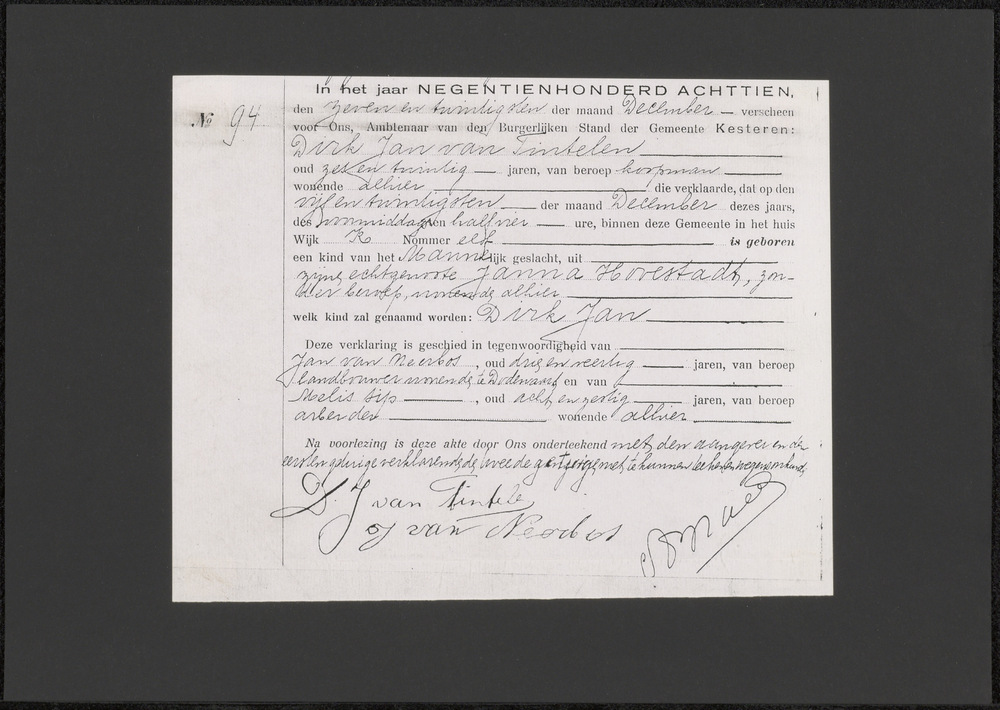 In het jaar NEGENTIENHONDERD ACHTTIEN,
№ 94
den zeven en twintigsten der maand December – verscheen
voor Ons, Ambtenaar van den Burgerlijken Stand der Gemeente Kesteren:
Dirk Jan van Tintelen
oud zes en twintig — jaren, van beroep koopman
wonende alhier die verklaarde, dat op den
vijf en twintigsten — der maand December dezes jaars,
des voormiddags ten half vier — ure, binnen deze Gemeente in het huis
Wijk K Nommer elf is geboren
een kind van het Mannelijk geslacht, uit
zijne echtgenoote Janna Hovestadt, zon-
der beroep, wonende alhier
welk kind zal genaamd worden: Dirk Jan
Deze verklaring is geschied in tegenwoordigheid van
Jan van Neerbos, oud drie en veertig jaren, van beroep
landbouwer wonende te Dodewaard en van
Melis Sip, oud acht en zestig jaren, van beroep
arbeider wonende alhier
Na voorlezing is deze akte door Ons onderteekend met den aangever en den
eersten getuige verklarende de tweede getuige niet te kunnen teekenen
D J van Tintele
J van Neerbos